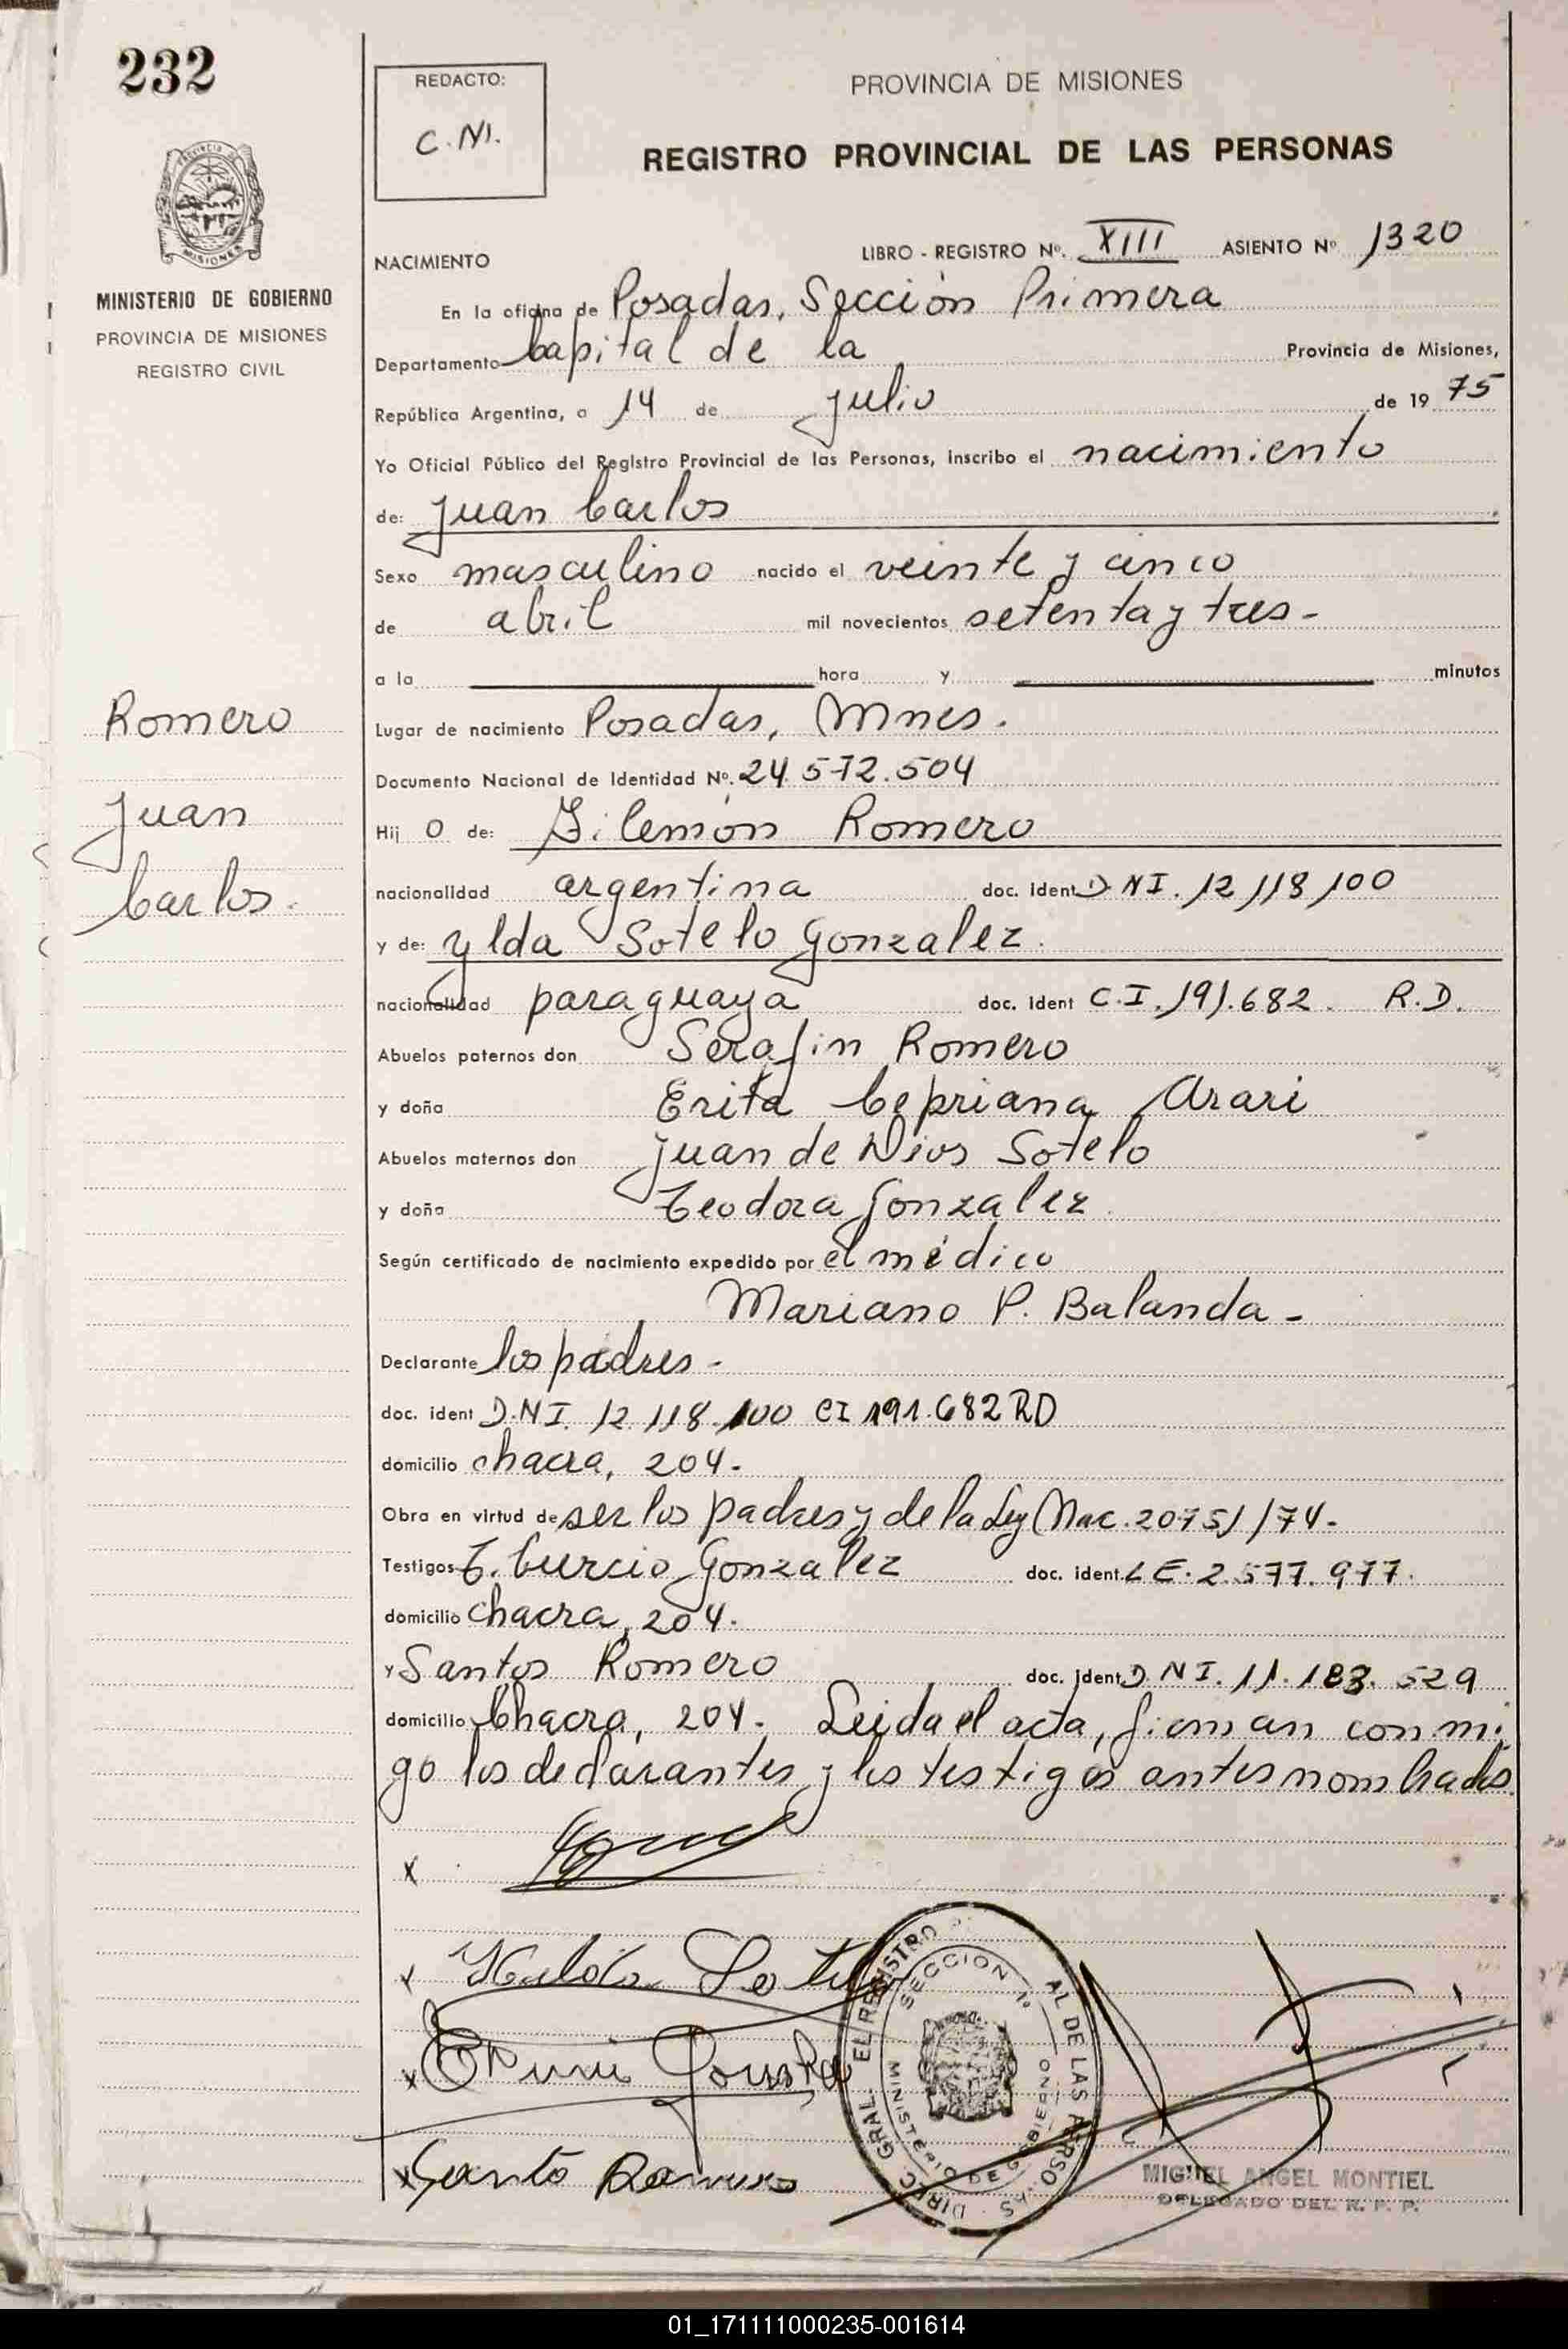 232
REDACTO:
C.M.
PROVINCIA DE MISIONES
REGISTRO PROVINCIAL DE LAS PERSONAS
MINISTERIO DE GOBIERNO
PROVINCIA DE MISIONES
REGISTRO CIVIL
NACIMIENTO LIBRO - REGISTRO Nº. XIII ASIENTO Nº 1320
En la oficina de Posadas, Sección Primera
Departamento Capital de la Provincia de Misiones,
República Argentina, a 14 de julio de 1975
Yo Oficial Público del Registro Provincial de las Personas, inscribo el nacimiento
de: Juan Carlos
Sexo masculino nacido el veinte y cinco
de abril mil novecientos setenta y tres-
a la hora y minutos
Romero
Juan
Carlos.
Lugar de nacimiento Posadas, Mnes.
Documento Nacional de Identidad Nº. 24.572.504
Hij o de: Filemón Romero
nacionalidad argentina doc. ident D.N.I. 12.118.100
y de: Ylda Sotelo Gonzalez.
nacionalidad paraguaya doc. ident C.I. 191.682. R.D.
Abuelos paternos don Serafin Romero
y doña Erita Cepriana Arari
Abuelos maternos don Juan de Dios Sotelo
y doña Teodora Gonzalez
Según certificado de nacimiento expedido por el médico
Mariano P. Balanda-
Declarante los padres-
doc. ident D.N.I. 12.118.100 CI 191.682 RD
domicilio chacra, 204-
Obra en virtud de ser los padres y de la Ley Nac. 20751/74-
Testigos Gonzalez doc. ident L.E. 2.577.977.
domicilio chacra, 204.
y Santos Romero doc. ident D.N.I. 11.183.529
domicilio Chacra, 204. Leida el acta, firman conmi
go los declarantes y los testigos antes nombrados
x
x Hilda Sotelo
x
x Santo Romero
DIREC. GRAL. EL REGISTRO AL DE LAS PERSONAS
SECCION 1ª
MINISTERIO DE GOBIERNO
MIGUEL ANGEL MONTIEL
DELEGADO DEL R. P. P.
01_171111000235-001614